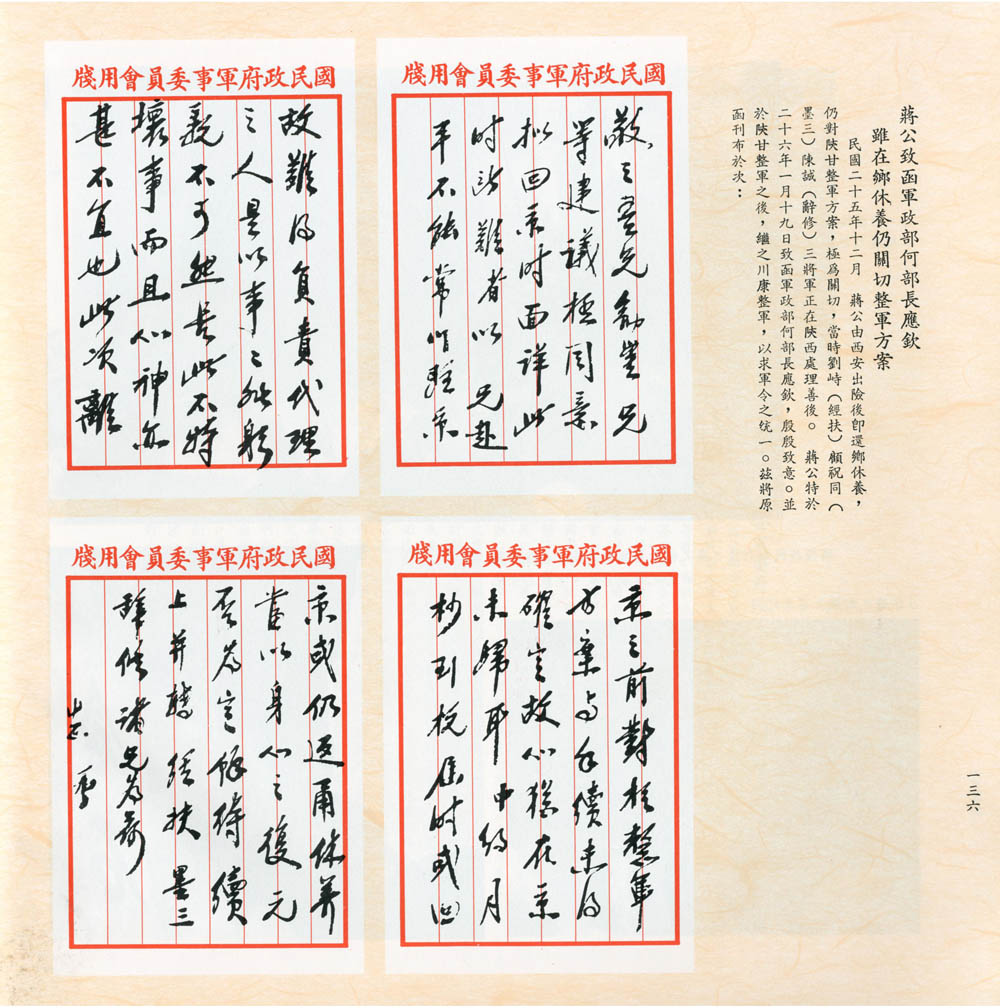 蔣公致函軍政部何部長應欽
雖在鄉休養仍關切整軍方案
民國二十五年十二月　蔣公由西安出險後卽還鄉休養，
仍對陝甘整軍方案，極為關切，當時劉峙（經扶）顧祝同（
墨三）陳誠（辭修）三將軍正在陝西處理善後。　蔣公特於
二十六年一月十九日致函軍政部何部長應欽，殷殷致意。並
於陝甘整軍之後，繼之川康整軍，以求軍令之統一。茲將原
函刊布於次：
國民政府軍事委員會用牋
敬之吾兄勛鑒兄
等建議極同意
擬回京時面詳此
時所難者以　兄赴
平不能常駐京
國民政府軍事委員會用牋
故難得負責代理
之人是以事之能躬
親不可然長此不特
壞事而且心神亦
甚不宜也此次離
國民政府軍事委員會用牋
京之前對於整軍
方案與手續未得
確定故心猶在京
未歸耳中約月
杪到杭屆時或回
國民政府軍事委員會用牋
京或仍返甬休養
當以身心之復元
否為定餘待續
上并轉經扶　墨三
辭修諸兄為荷
一三六